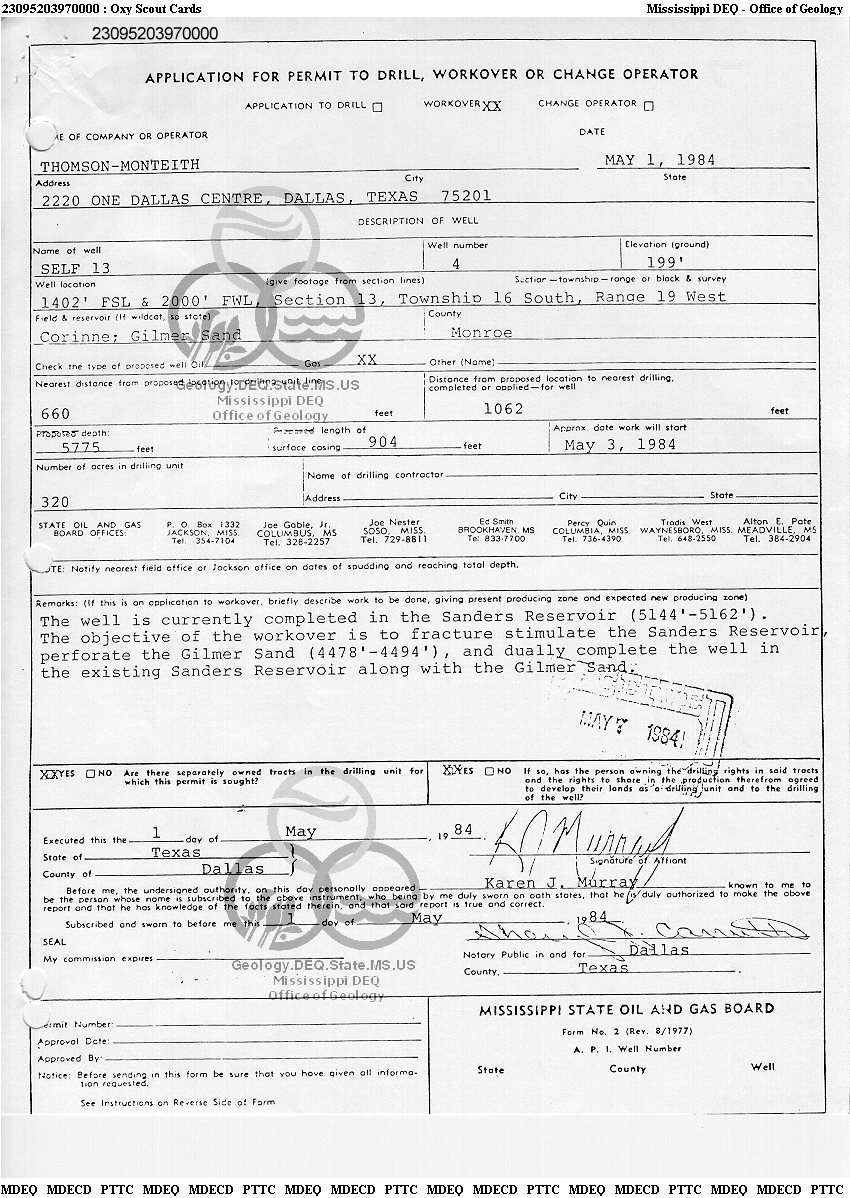 23095203970000 : Oxy Scout Cards Mississippi DEQ - Office of Geology
23095203970000
APPLICATION FOR PERMIT TO DRILL, WORKOVER OR CHANGE OPERATOR
APPLICATION TO DRILL □ WORKOVER XX CHANGE OPERATOR □
ME OF COMPANY OR OPERATOR DATE
THOMSON-MONTEITH MAY 1, 1984
Address City State
2220 ONE DALLAS CENTRE, DALLAS, TEXAS 75201
DESCRIPTION OF WELL
Name of well Well number Elevation (ground)
SELF 13 4 199'
Well location (give footage from section lines) Section—township—range or block & survey
1402' FSL & 2000' FWL, Section 13, Township 16 South, Range 19 West
Field & reservoir (If wildcat, so state) County
Corinne; Gilmer Sand Monroe
Check the type of proposed well Oil Gas XX Other (Name)
Nearest distance from proposed location to drilling unit line Distance from proposed location to nearest drilling,
completed or applied—for well
660 feet 1062 feet
Proposed depth: length of Approx. date work will start
5775 feet surface casing 904 feet May 3, 1984
Number of acres in drilling unit Name of drilling contractor
320 Address City State
STATE OIL AND GAS BOARD OFFICES: P. O. Box 1332 JACKSON, MISS. Tel. 354-7104 Joe Goble, Jr. COLUMBUS, MS Tel. 328-2257 Joe Nester SOSO, MISS. Tel. 729-8811 Ed Smith BROOKHAVEN, MS Tel. 833-7700 Percy Quin COLUMBIA, MISS. Tel. 736-4390 Tradis West WAYNESBORO, MISS. Tel. 648-2550 Alton E. Pate MEADVILLE, MS Tel. 384-2904
OTE: Notify nearest field office or Jackson office on dates of spudding and reaching total depth.
Remarks: (If this is an application to workover, briefly describe work to be done, giving present producing zone and expected new producing zone)
The well is currently completed in the Sanders Reservoir (5144'-5162').
The objective of the workover is to fracture stimulate the Sanders Reservoir,
perforate the Gilmer Sand (4478'-4494'), and dually complete the well in
the existing Sanders Reservoir along with the Gilmer Sand.
MAY 1984
XXYES □ NO Are there separately owned tracts in the drilling unit for
which this permit is sought?
XXYES □ NO If so, has the person owning the drilling rights in said tracts
and the rights to share in the production therefrom agreed
to develop their lands as a drilling unit and to the drilling
of the well?
Executed this the 1 day of May, 1984.
State of Texas Signature of Affiant
County of Dallas
Before me, the undersigned authority, on this day personally appeared Karen J. Murray known to me to
be the person whose name is subscribed to the above instrument, who being by me duly sworn on oath states, that he is duly authorized to make the above
report and that he has knowledge of the facts stated therein, and that said report is true and correct.
Subscribed and sworn to before me this 1 day of May 1984
SEAL
Notary Public in and for Dallas
My commission expires
County, Texas.
Geology.DEQ.State.MS.US
Mississippi DEQ
Office of Geology
Geology.DEQ.State.MS.US
Mississippi DEQ
Office of Geology
ermit Number:
Approval Date:
Approved By:
Notice: Before sending in this form be sure that you have given all informa-
tion requested.
See Instructions on Reverse Side of Form
MISSISSIPPI STATE OIL AND GAS BOARD
Form No. 2 (Rev. 8/1977)
A. P. I. Well Number
State County Well
MDEQ MDECD PTTC MDEQ MDECD PTTC MDEQ MDECD PTTC MDEQ MDECD PTTC MDEQ MDECD PTTC MDEQ MDECD PTTC